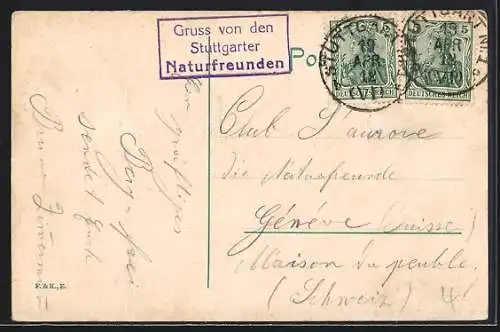 Gruss von den
Stuttgarter
Naturfreunden
Po
STUTTGART
19
APR
12
(VI)
STUTTGART Nr. 1
19
APR
12
(VI)
5
5
DEUTSCHES REICH
DEUTSCHES REICH
Club L'aurore
die Naturfreunde
Genéve (Suisse)
Maison du peuble
(Schweiz)
Berg-frei
sendet Euch
Bruno
F. & K., E.